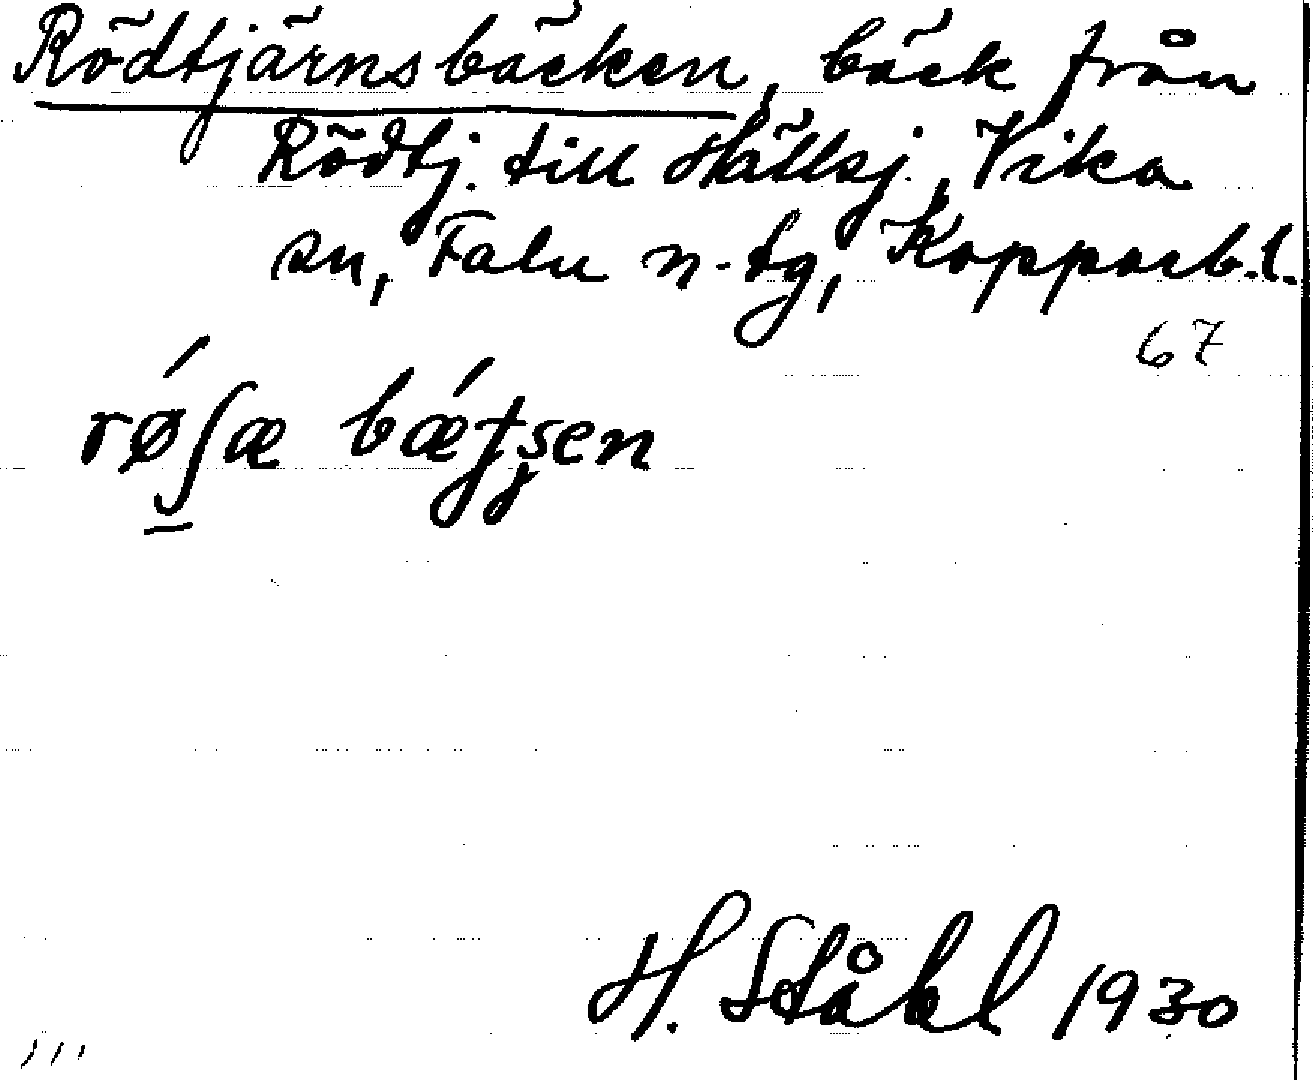 Rödtjärnsbäcken, bäck från
Rödtj. till Hällsj., Vika
sn, Falu n. tg, Kopparb.l.
67
H. Ståhl 1930